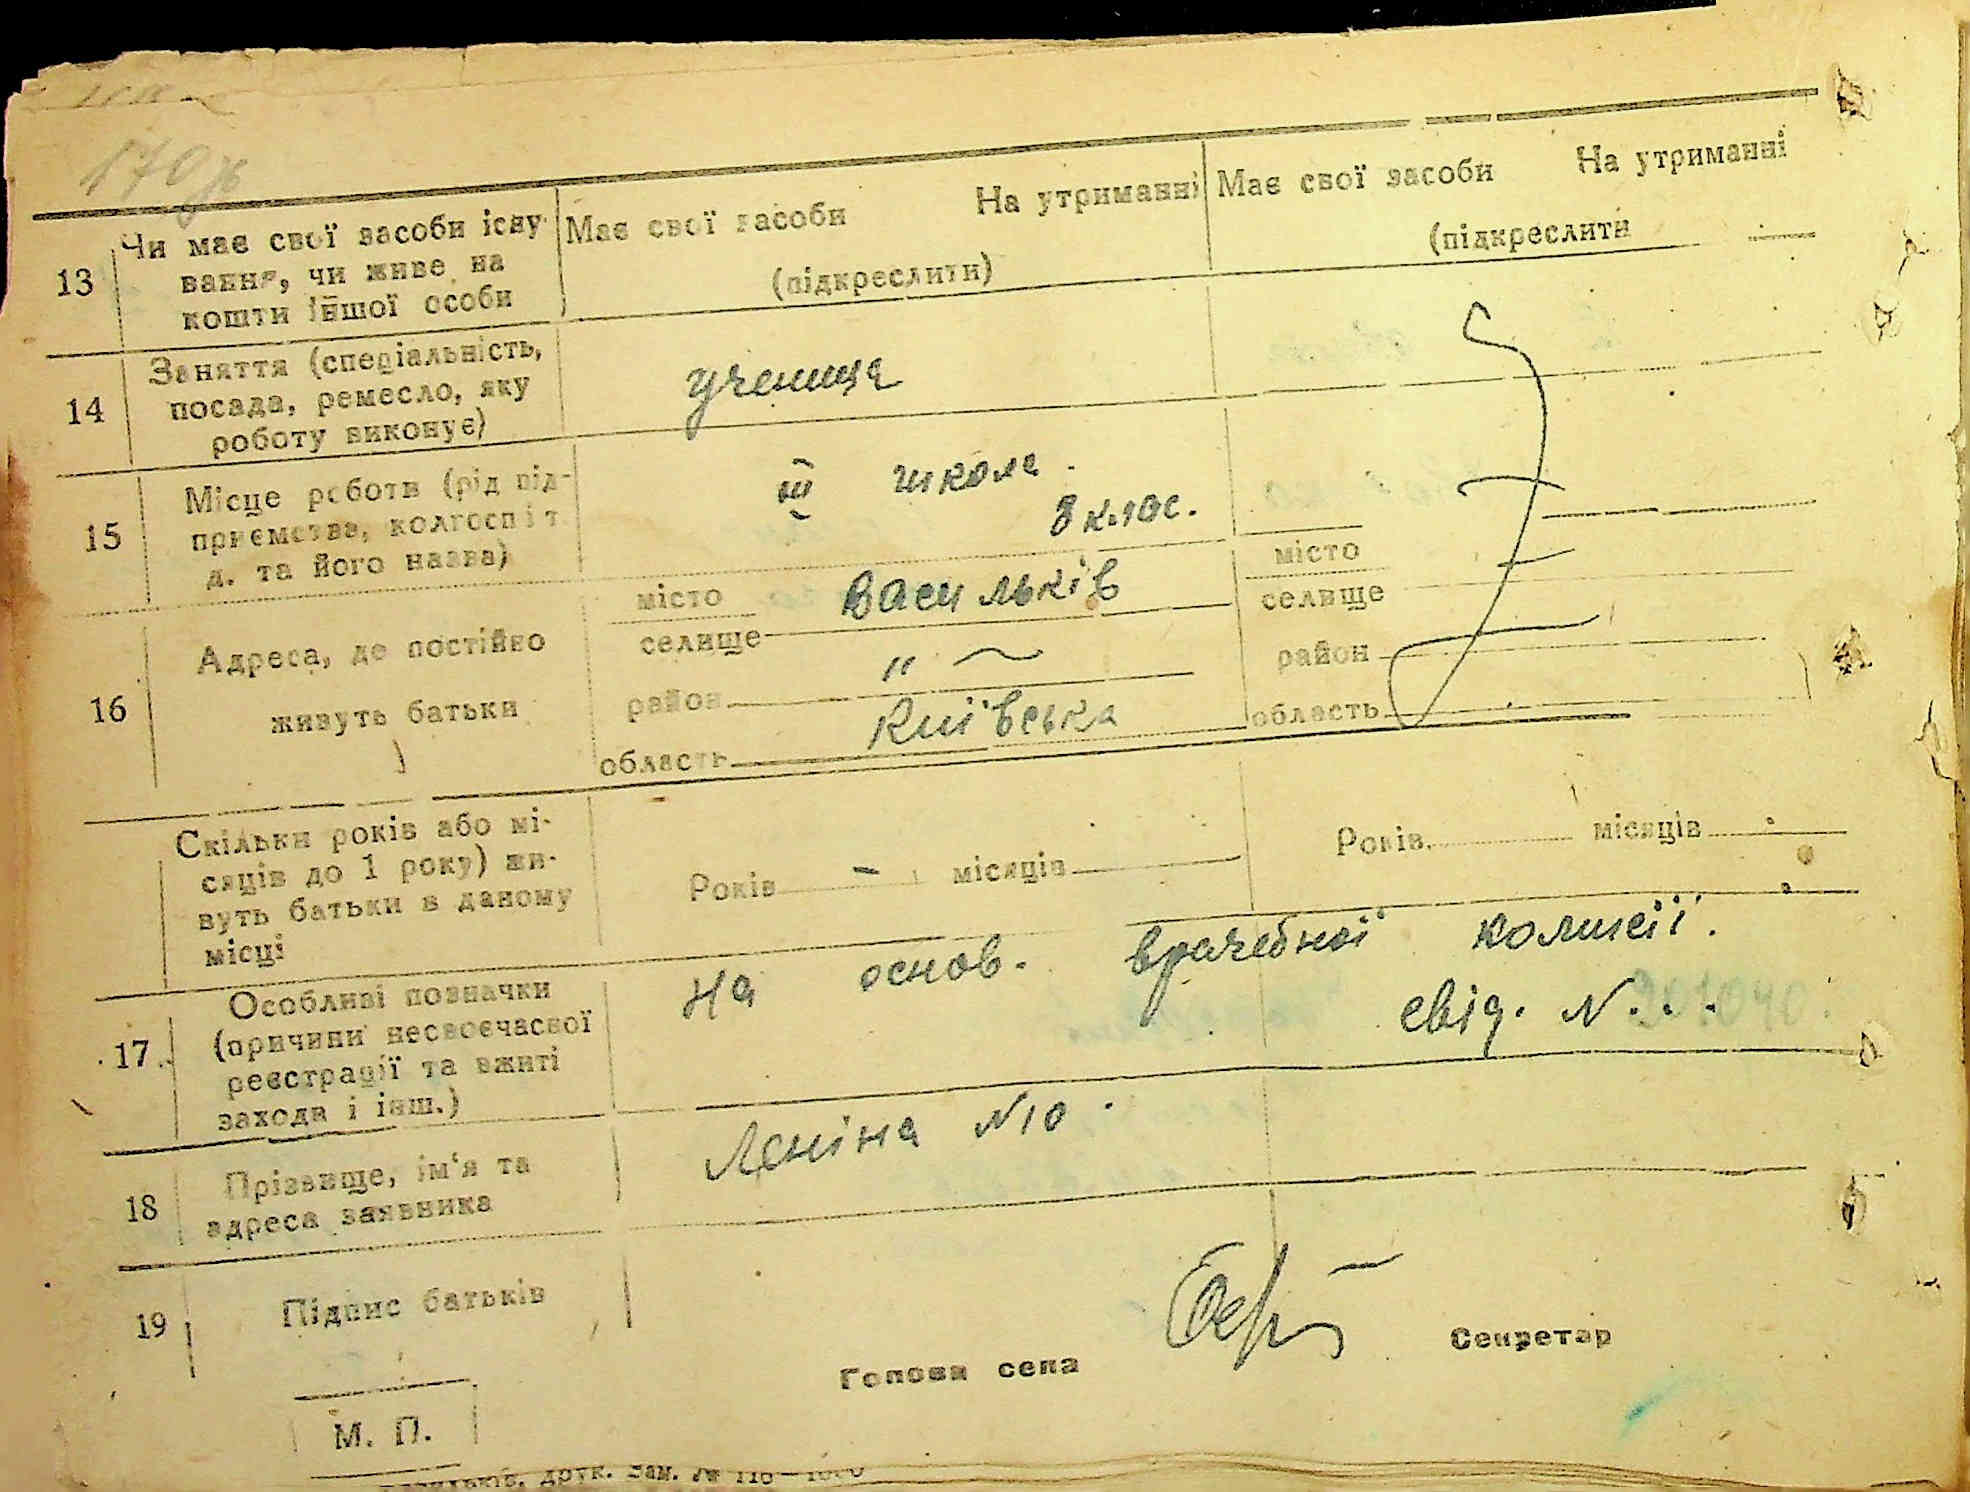 170
Має свої засоби На утриманні Має свої засоби На утриманні
(підкреслити) (підкреслити
13 Чи має свої засоби існу-
вання, чи живе на
кошти іншої особи
14 Заняття (спеціальність,
посада, ремесло, яку
роботу виконує)
учениця
15 Місце роботи (рід під-
приємства, колгосп і т.
д. та його назва)
III школа.
8 клас.
16 Адреса, де постійно
живуть батьки
місто Васильків
селище
район "
область Київська
місто
селище
район
область
Скільки років або мі-
сяців до 1 року) жи-
вуть батьки в даному
місці
Років - місяців Років місяців
17 Особливі позначки
(причини несвоєчасної
реєстрації та вжиті
заходи і інш.)
На основ. врачебної комісії.
свід. N... 901040.
18 Прізвище, ім'я та
адреса заявника
Леніна N 10.
19 Підпис батьків
Голова села Секретар
М. П.
друк. Зам. №